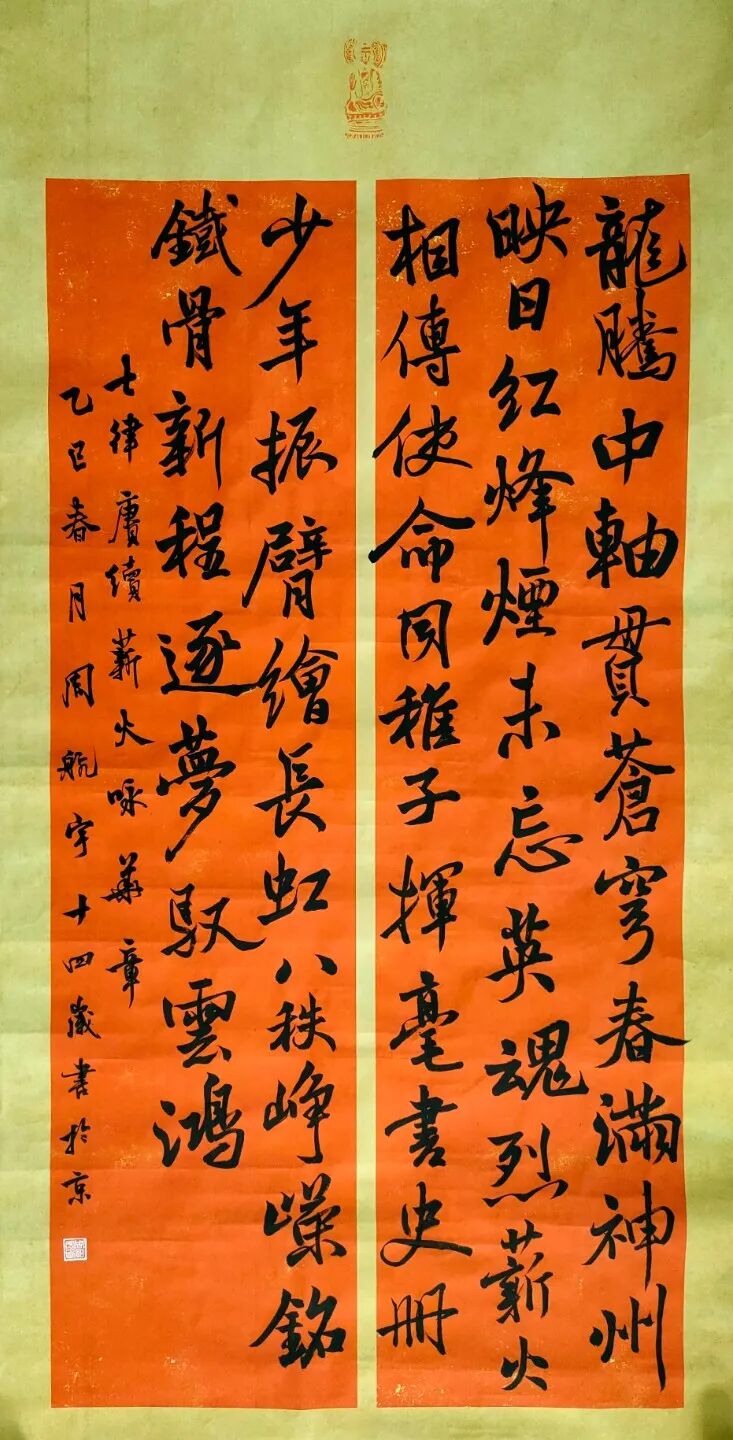 龍騰中軸貫蒼穹春滿神州
映日红烽煙未忘英魂烈薪火
相傳使命同稚子揮毫書史册
少年振臂繪長虹八秩峥嶸銘
鐵骨新程逐夢馭雲鴻
七律賡續薪火咏華章
乙巳春月周航宇十四歲書於京